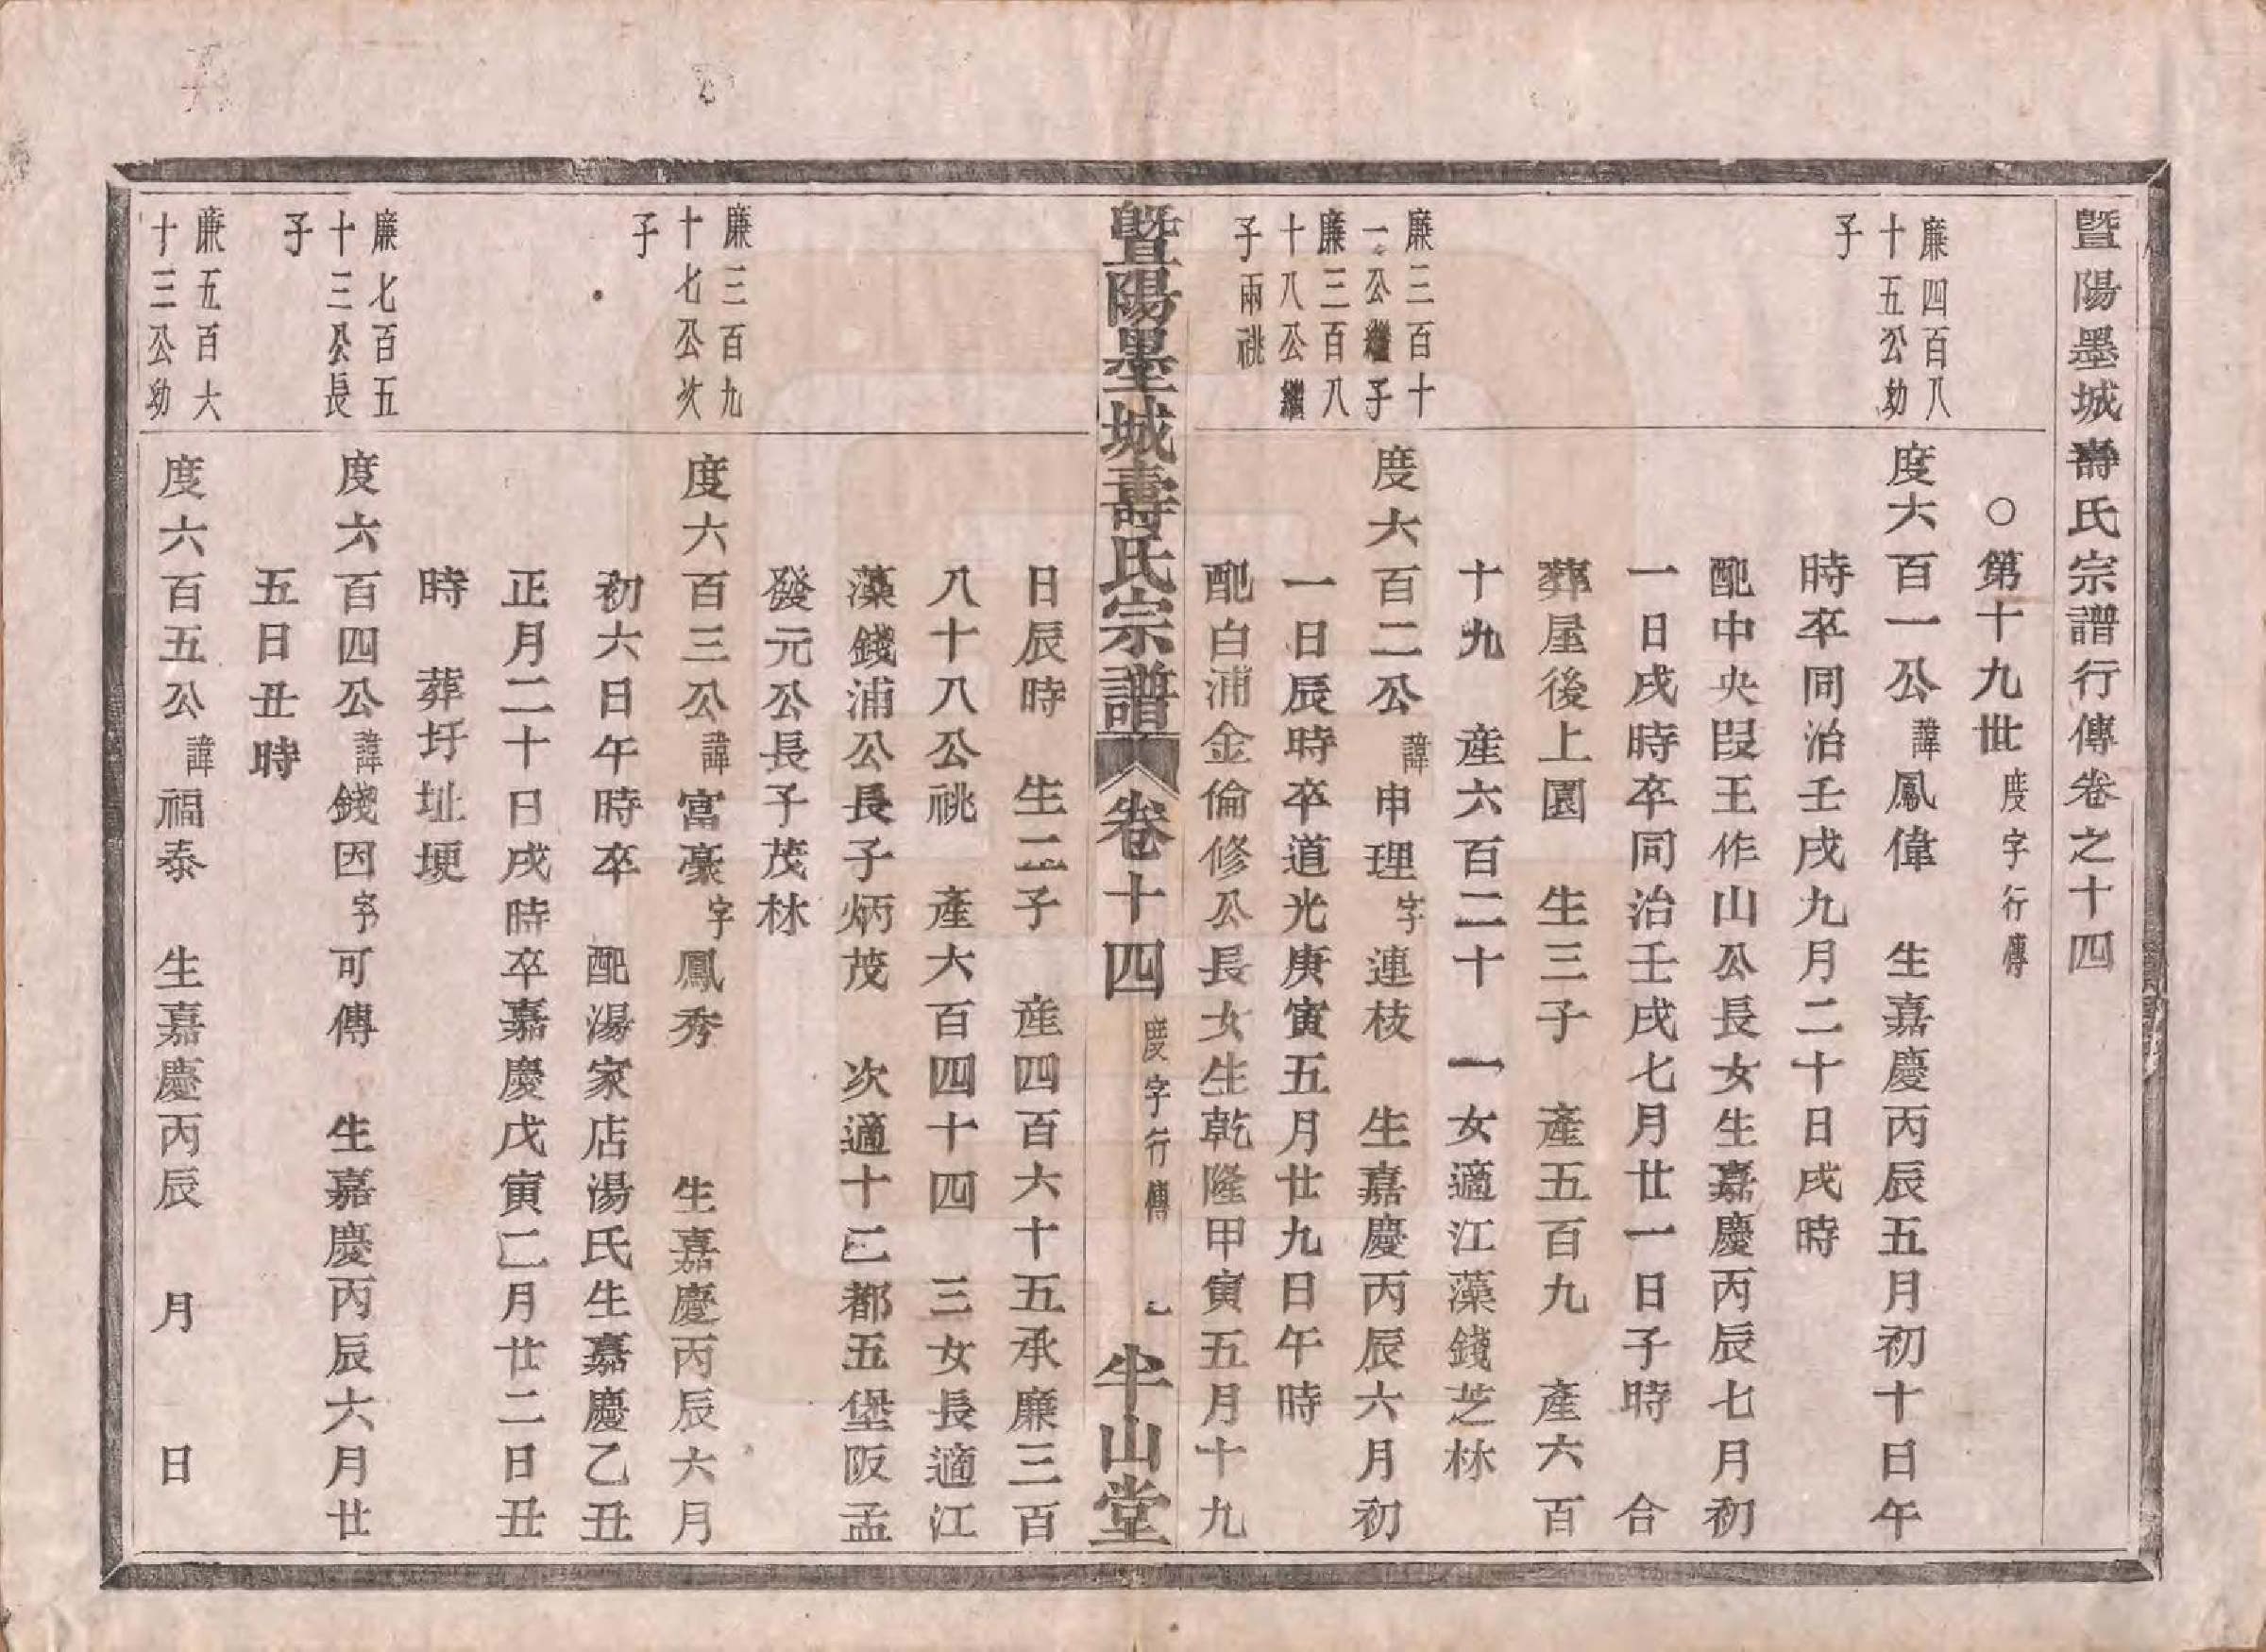 暨陽墨城壽氏宗譜行傳卷之十四
○第十九世度字行傳
廉四百八
十五公幼
子
度六百一公諱鳳偉　生嘉慶丙辰五月初十日午
時卒同治壬戌九月二十日戌時
配中央段王作山公長女生嘉慶丙辰七月初
一日戌時卒同治壬戌七月廿一日子時　合
葬屋後上園　生三子　產五百九　產六百
十九　產六百二十　一女適江藻錢芝林
廉三百十
一公繼子
廉三百八
十八公繼
子兩祧
度六百二公諱申理字連枝　生嘉慶丙辰六月初
一日辰時卒道光庚寅五月廿九日午時
配白浦金倫修公長女生乾隆甲寅五月十九
暨陽墨城壽氏宗譜　卷十四　度字行傳　半山堂
日辰時　生二子　產四百六十五承廉三百
八十八公祧　產六百四十四　三女長適江
藻錢浦公長子炳茂　次適十二都五堡阪孟
發元公長子茂林
廉三百九
十七公次
子
度六百三公諱富豪字鳳秀　生嘉慶丙辰六月
初六日午時卒　配湯家店湯氏生嘉慶乙丑
正月二十日戌時卒嘉慶戊寅二月廿二日丑
時　葬圩址埂
廉七百五
十三公長
子
度六百四公諱錢因字可傳　生嘉慶丙辰六月廿
五日丑時
廉五百六
十三公幼
度六百五公諱福泰　生嘉慶丙辰　月　日